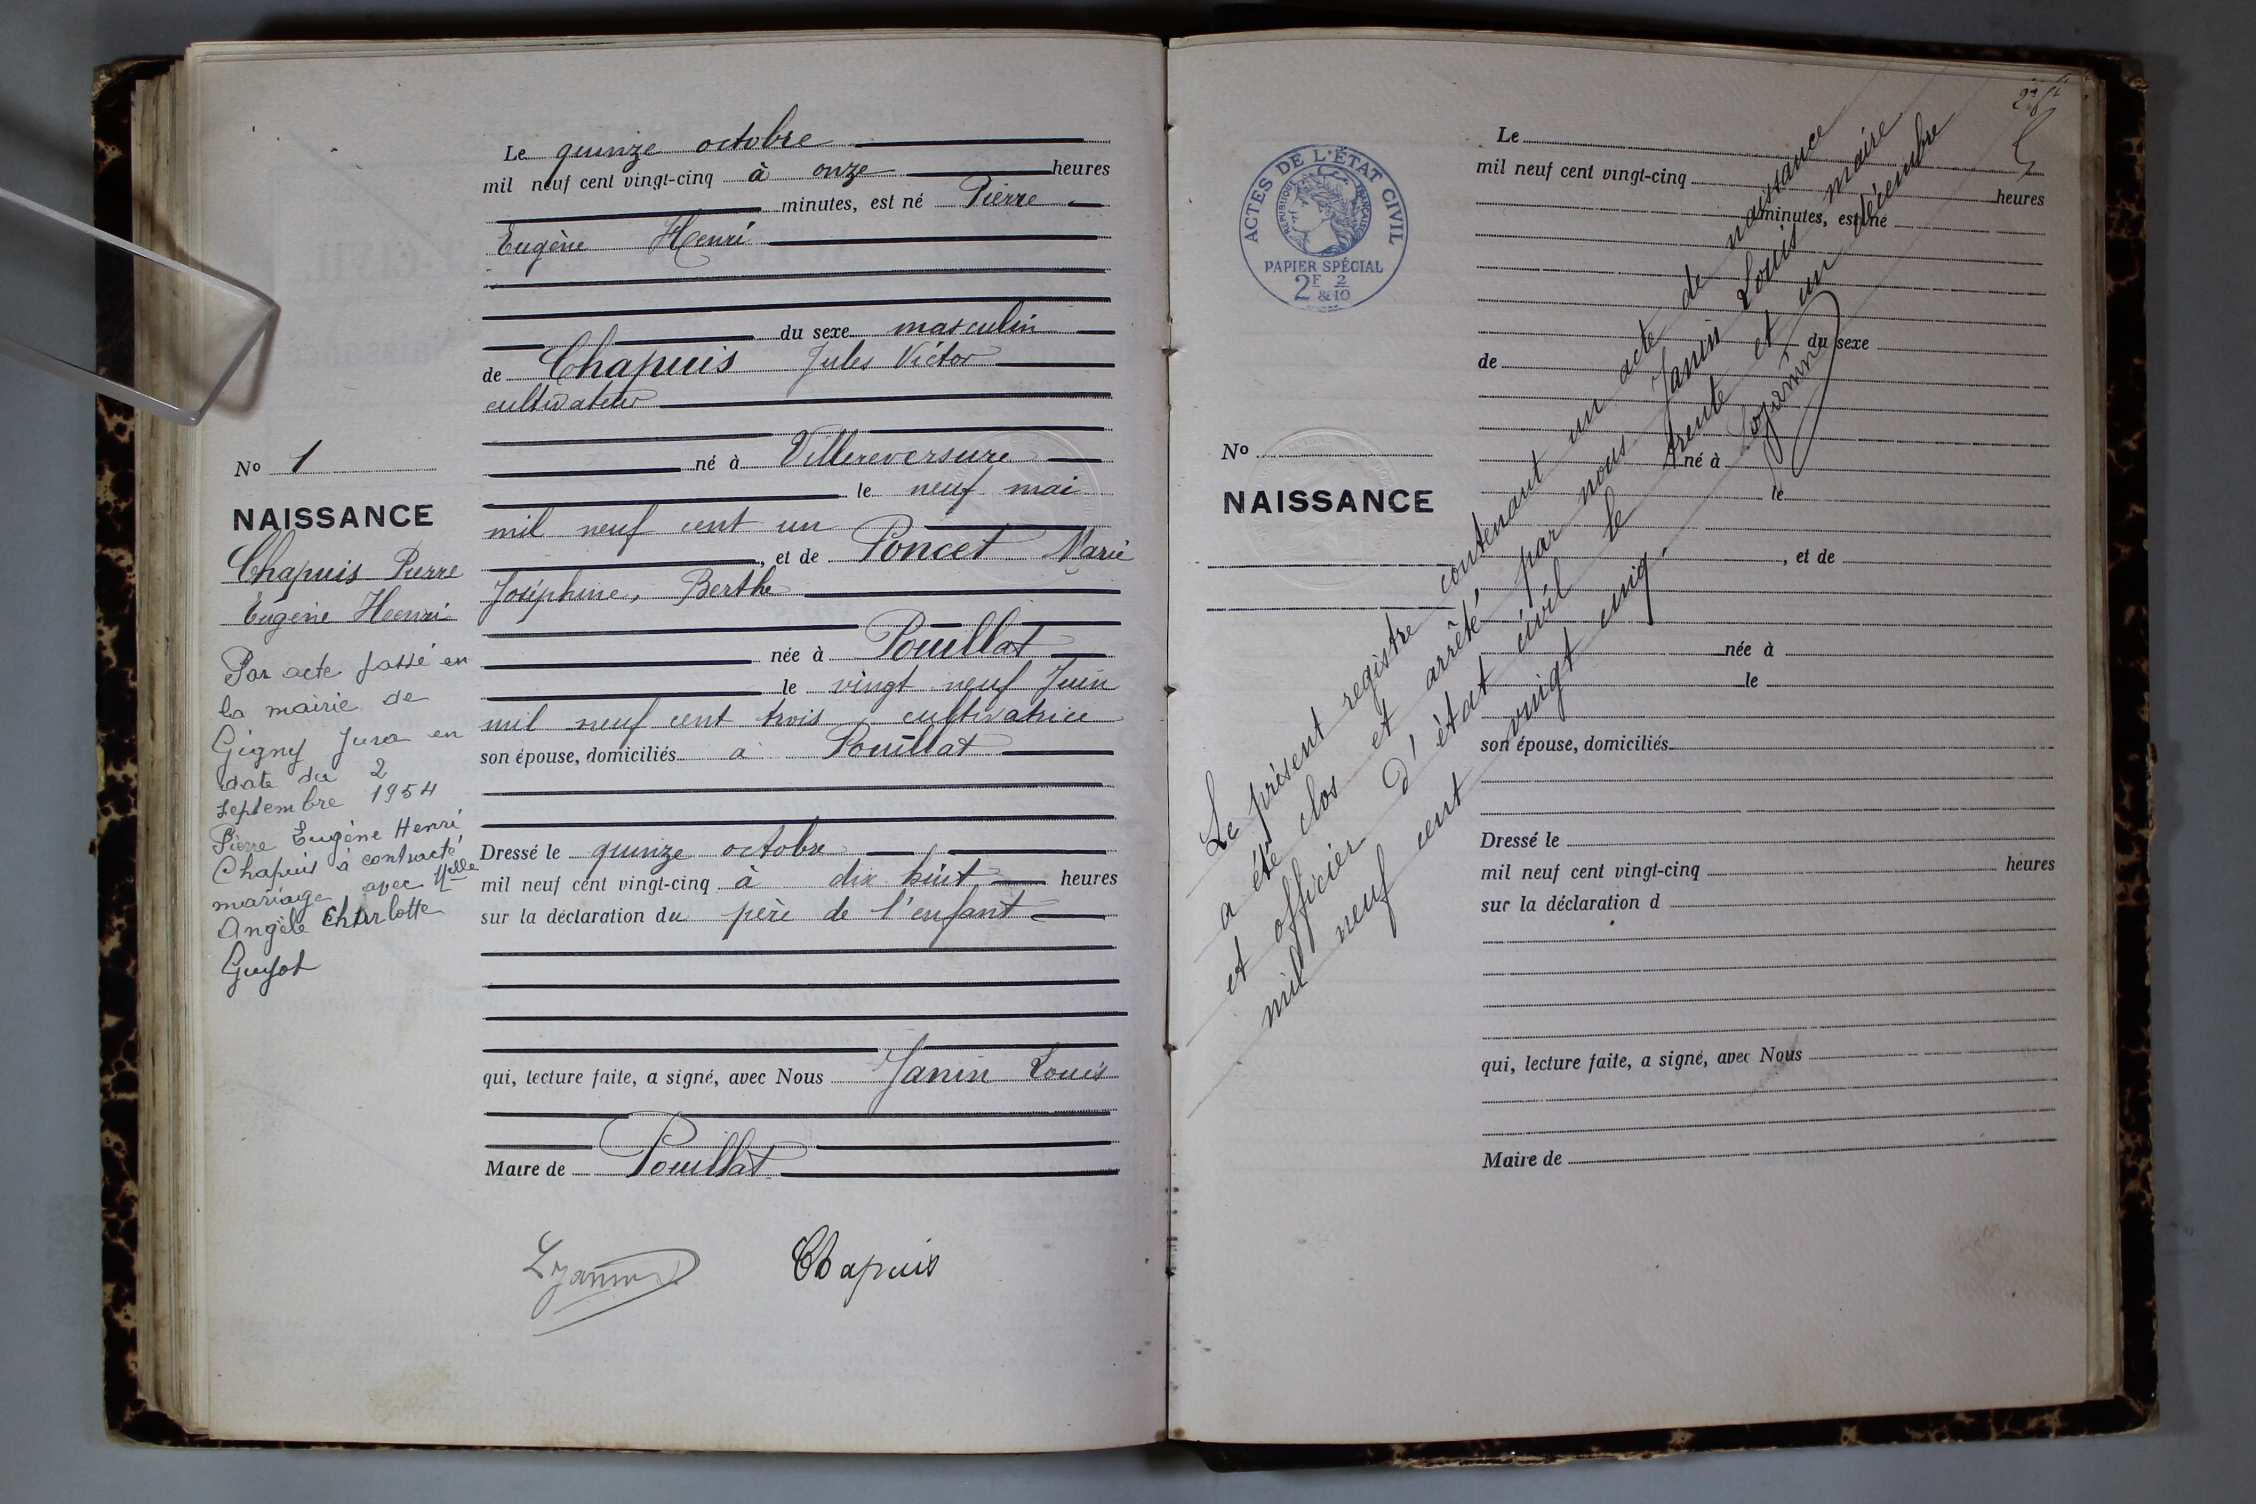 Le quinze octobre
mil neuf cent vingt-cinq à onze heures
minutes, est né Pierre
Eugène Henri
du sexe masculin
de Chapuis Jules Victor
cultivateur
né à Villereversure
le neuf mai
mil neuf cent un
, et de Poncet Marie
Joséphine, Berthe
née à Pouillat
le vingt neuf Juin
mil neuf cent trois cultivatrice
son épouse, domiciliés à Pouillat
Dressé le quinze octobre
mil neuf cent vingt-cinq à dix huit heures
sur la déclaration du père de l'enfant
qui, lecture faite, a signé, avec Nous Janin Louis
Maire de Pouillat
Chapuis
No 1
NAISSANCE
Chapuis Pierre
Eugène Henri
Par acte passé en
la mairie de
Gigny Jura en
date du 2
septembre 1954
Pierre Eugène Henri
Chapuis a contracté
mariage avec Melle
Angèle Charlotte
Guyot
ACTES DE L'ÉTAT CIVIL
RÉPUBLIQUE FRANÇAISE
PAPIER SPÉCIAL
2F 2
& 10
Le
mil neuf cent vingt-cinq
heures
minutes, est né
du sexe
de
né à
le
, et de
née à
le
son épouse, domiciliés
Dressé le
mil neuf cent vingt-cinq heures
sur la déclaration d
qui, lecture faite, a signé, avec Nous
Maire de
No
NAISSANCE
Le présent registre contenant un acte de naissance
a été clos et arrêté par nous Janin Louis maire
et officier d'état civil le trente et un décembre
mil neuf cent vingt cinq.